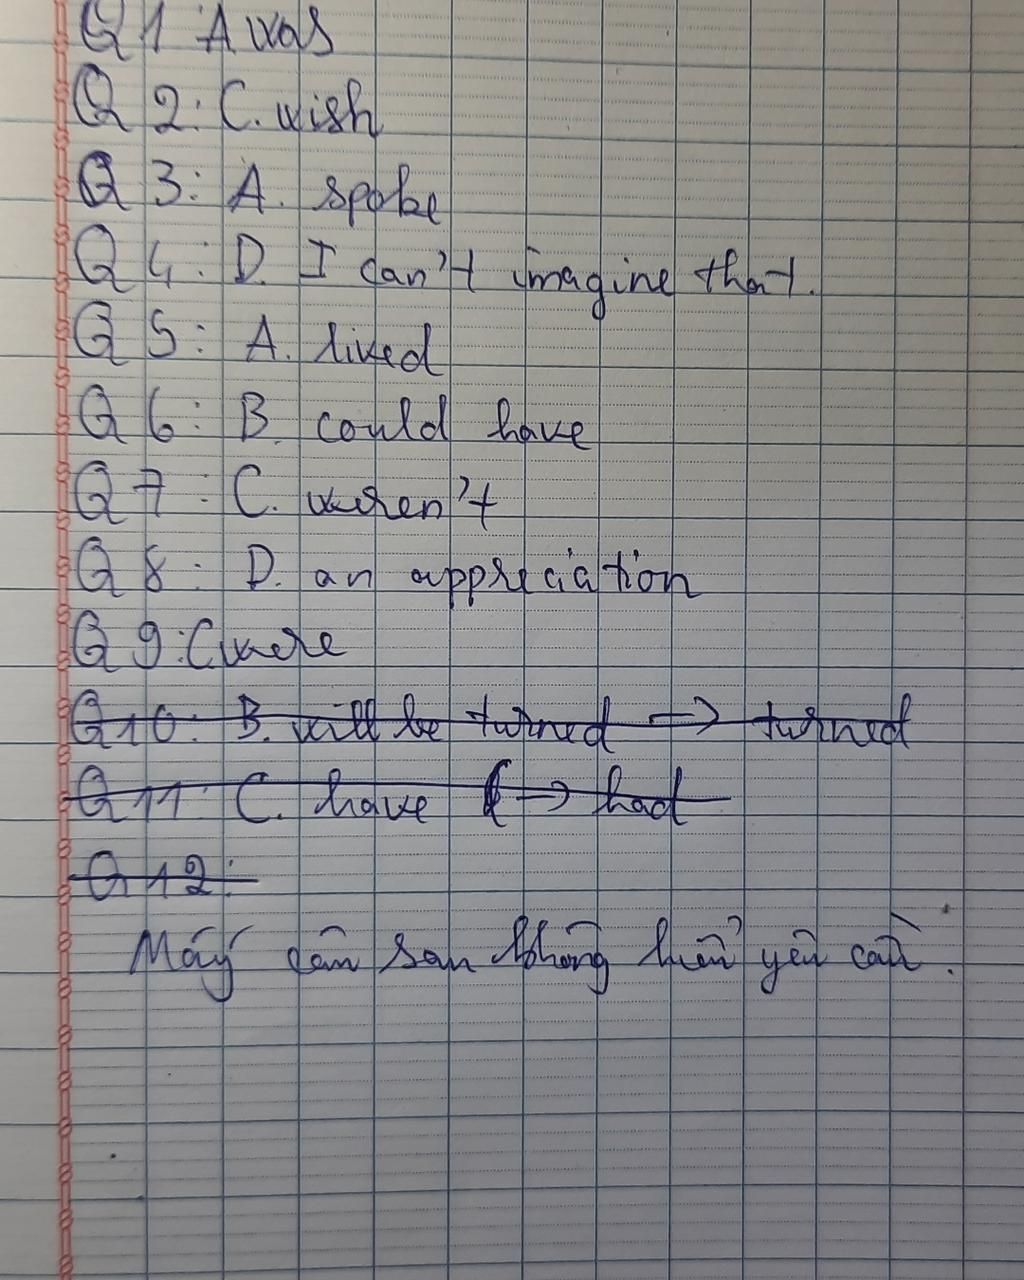 Q1 A was
Q 2: C. wish
Q 3: A. spoke
Q 4: D. I can't imagine that.
Q 5: A. lived
Q 6: B. could have
Q 7: C. weren't
Q 8: D. an appreciation
Q 9: C were
Q10: B. will be turned → turned
Q11: C. have → had
Q 12:
Mấy câu sau không hiểu yêu cầu.